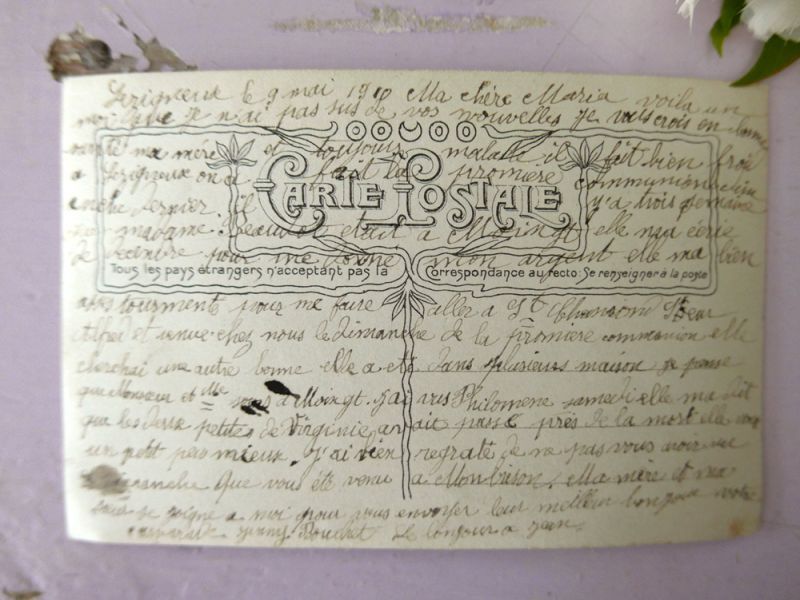 Lezigneux le 9 mai 1910 Ma chère Maria voila un
moi que je n'ai pas sus de vos nouvelles je vous crois en bonne
santé ma mère et toujours malade il fait bien froi
a Lezigneux on a fait la promiere communion
CARTE POSTALE
dernier. il y'a trois semaine
madame était a Moingt elle m'a écrie
de decembre pour me donne mon argent elle ma bien
Tous les pays étrangers n'acceptant pas la Correspondance au recto. Se renseigner à la poste
tourmenté pour me faire aller a St Chamond
Alfred et venue chez nous le dimanche de la promiere communion elle
cherchai une autre bonne elle a été dans plusieurs maison je pense
que Monsieur et Mme a Moingt. j'ai vus Philomene samedi elle ma dit
que les deux petites de Virginie avait passé près de la mort elle vont
un petit peu mieux. j'ai bien regreté de ne pas vous avoir vu
dimanche que vous été venu a Montbrison. Ma mère et ma
se joigne a moi pour vous envoyer leur meilleur bonjour votre
jenny Bouchet Le bonjour a jean